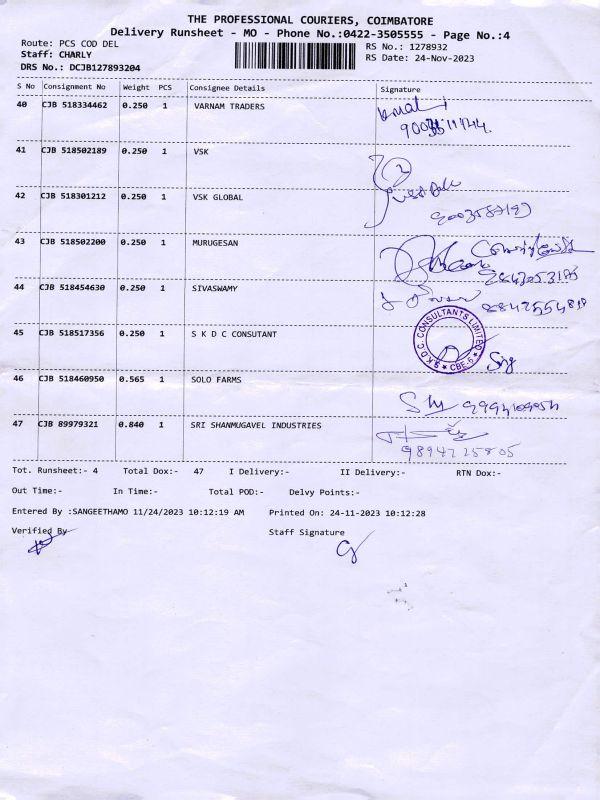 THE PROFESSIONAL COURIERS, COIMBATORE
Delivery Runsheet - MO - Phone No.:0422-3505555 - Page No.:4
Route: PCS COD DEL
RS No.: 1278932
Staff: CHARLY
RS Date: 24-Nov-2023
DRS No.: DCJB127893204
S No Consignment No Weight PCS Consignee Details Signature
40 CJB 518334462 0.250 1 VARNAM TRADERS
41 CJB 518502189 0.250 1 VSK
42 CJB 518301212 0.250 1 VSK GLOBAL
43 CJB 518502200 0.250 1 MURUGESAN
44 CJB 518454630 0.250 1 SIVASWAMY
45 CJB 518517356 0.250 1 S K D C CONSUTANT
S.K.D.C. CONSULTANTS LIMITED
★ CBE-6 ★
46 CJB 518460950 0.565 1 SOLO FARMS
47 CJB 89979321 0.840 1 SRI SHANMUGAVEL INDUSTRIES
9894725805
Tot. Runsheet:- 4 Total Dox:- 47 I Delivery:- II Delivery:- RTN Dox:-
Out Time:- In Time:- Total POD:- Delvy Points:-
Entered By :SANGEETHAMO 11/24/2023 10:12:19 AM Printed On: 24-11-2023 10:12:28
Verified By Staff Signature